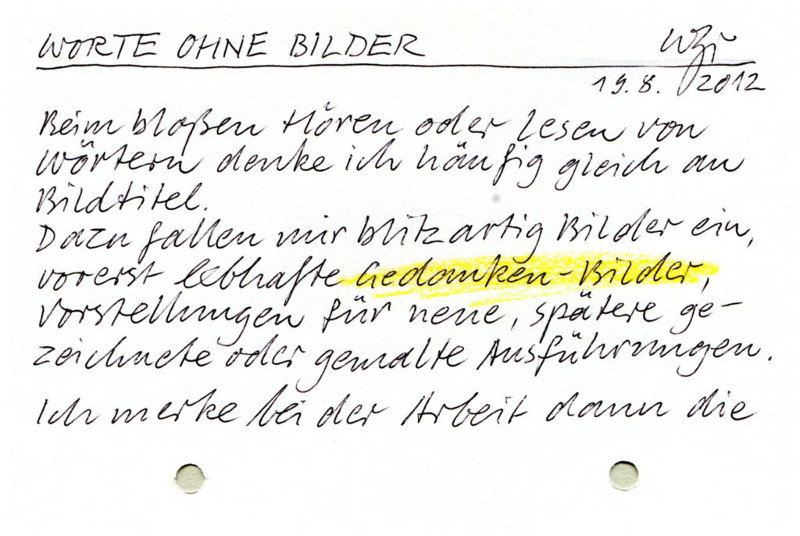 WORTE OHNE BILDER
19. 8. 2012
Beim bloßen Hören oder Lesen von
Wörtern denke ich häufig gleich an
Bildtitel.
Dazu fallen mir blitzartig Bilder ein,
vorerst lebhafte Gedanken-Bilder,
Vorstellungen für neue, spätere ge-
zeichnete oder gemalte Ausführungen.
Ich merke bei der Arbeit dann die